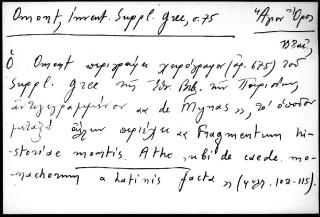 Omont, Invent. Suppl. Grec, σ. 75
"Άγιον" Όρος
Ὁ Omont περιγράφει χειρόγραφον (ἀρ. 675) τοῦ
Suppl. grec τῆς Ἐθν. Βιβ. τῶν Παρισίων,
ἀντιγεγραμμένον «de Mynas», τὸ ὁποῖον
μεταξὺ ἄλλων περιέχει «Fragmentum hi-
storiae montis Atho, ubi de caede mo-
nachorum a Latinis facta» (φφ. 102-115).